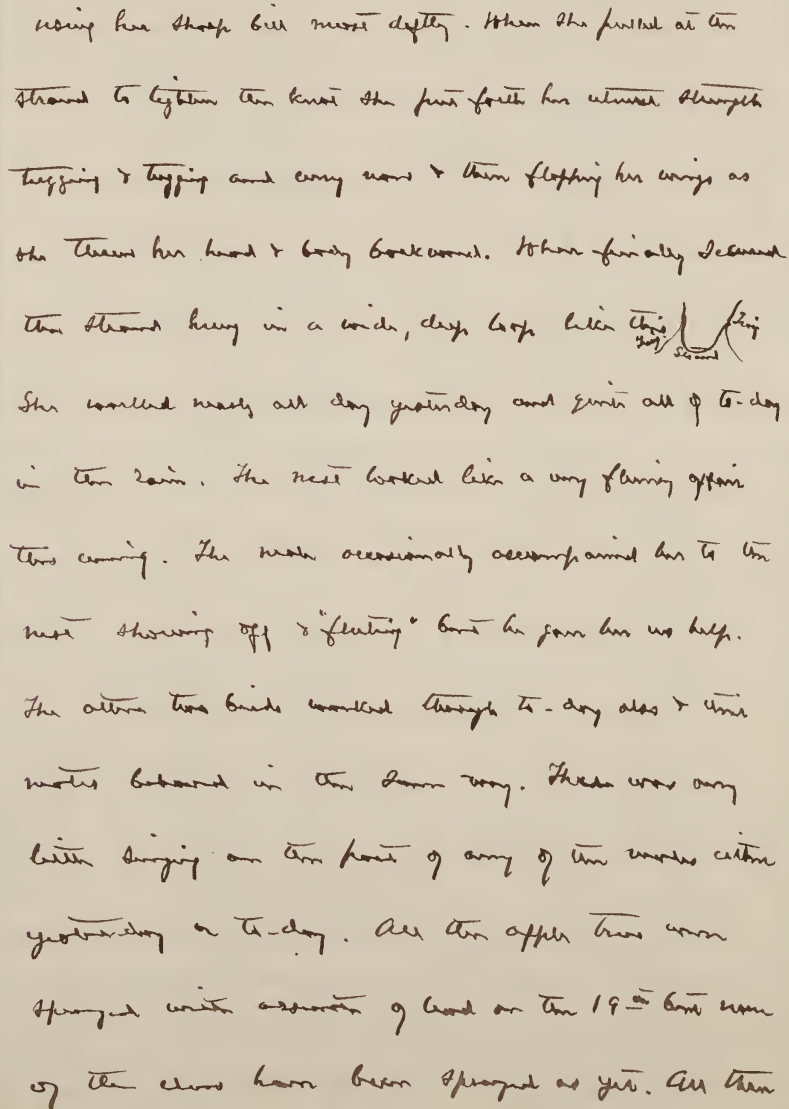 using her sharp bill most deftly. When she pulled at the
strand to tighten the knot she put forth her utmost strength
tugging & tugging and every now & then flapping her wings as
she threw her head & body backward. When finally secured
the strand hung in a wide, deep loop like this
Twig Strand Twig
She worked nearly all day yesterday and quite all of to-day
in the rain. The nest looked like a very flimsy affair
this evening. The male occasionally accompanied her to the
nest showing off & "fluting" but he gave her no help.
The other two birds worked through to-day also & their
mates behaved in the same way. There was very
little singing on the part of any of the males either
yesterday or to-day. All the apple trees were
sprayed with arsenate of lead on the 19th but none
of the elms have been sprayed as yet. All then